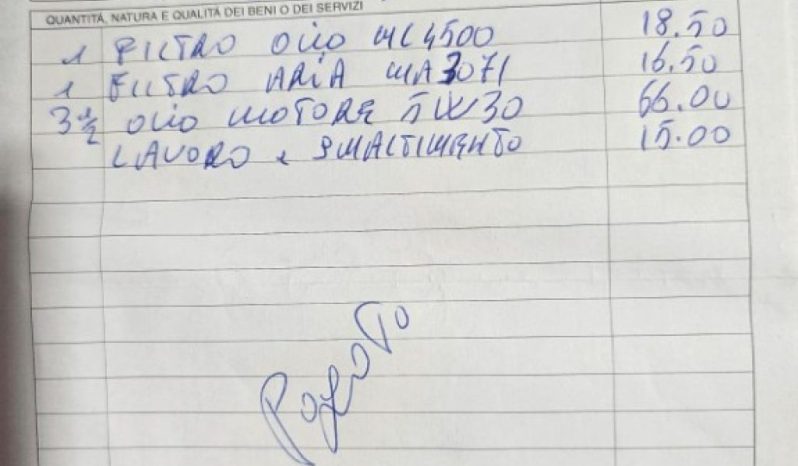 QUANTITÀ, NATURA E QUALITÀ DEI BENI O DEI SERVIZI
1 FILTRO OLIO ML4500 18.50
1 FILTRO ARIA MA3071 16.50
3 1/2 OLIO MOTORE 5W30 66.00
LAVORO e SMALTIMENTO 15.00
PAGATO